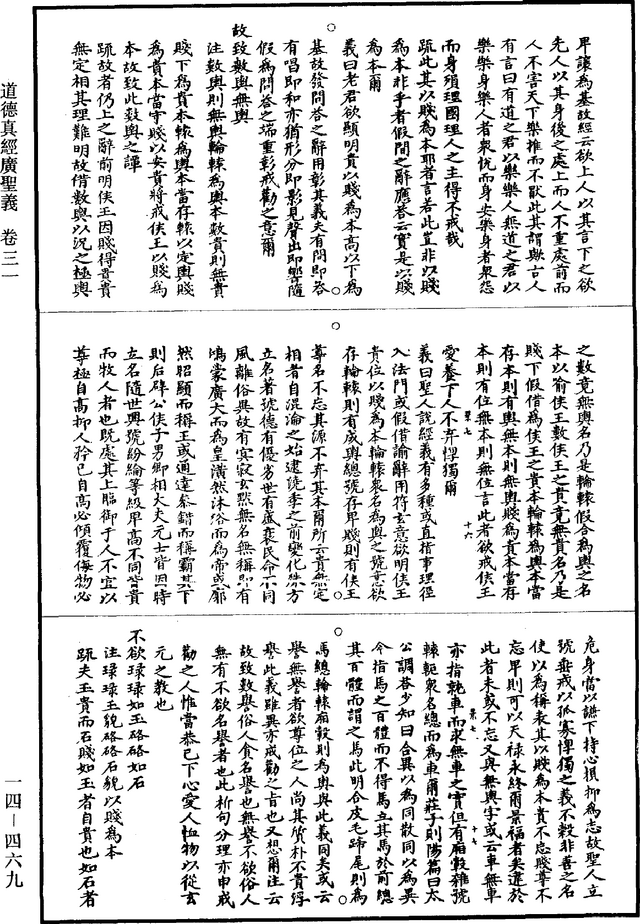 道德真經廣聖義 卷三一
一四—四六九
卑謙為基故經云欲上人以其言下之欲
先人以其身後之處上而人不重處前而
人不害天下樂推而不猒此其謂歟古人
有言曰有道之君以樂樂人無道之君以
樂樂身樂人者衆忧而身安樂身者衆怨
而身殞理國理人之主得不戒哉
疏此其以賤為本耶者言若此豈非以賤
為本非乎者假問之辭應荅云實是以賤
為本爾
義曰老君欲顯明貴以賤為本高以下為
基故發問荅之辭用彰其義夫有問即荅
有唱即和亦猶形分即影見聲出即響隨
假為問荅之端重彰戒勸之意爾
故致數輿無輿
注數輿則無輿輪轅為輿本數貴則無貴
賤下為貴本轅為輿本當存轅以定輿賤
為貴本當守賤以安貴將戒侯王以賤為
本故致此數輿之譚
疏故者仍上之辭前明侯王因賤得貴貴
無定相其理難明故借數輿以況之極輿
之數竟無輿名乃是輪轅假合為輿之名
本以喻侯王數侯王之貴竟無貴名乃是
賤下假借為侯王之貴本輪轅為輿本當
存本則有輿無本則無輿賤為貴本當存
本則有位無本則無位言此者欲戒侯王
愛養下人不弃惸獨爾
義曰聖人說經義有多種或直指事理徑
入法門或假借諭辭用符玄意欲明侯王
貴位以賤為本輪轅衆名為輿之號意欲
存輪轅則有成輿總號存卑賤則有侯王
尊名不忘其源不弃其本爾所云貴無定
相者自混淪之始逮諕季之前變化殊方
立名著號德有優劣世有盛衰民命不同
風離俗異故有寂寂玄默無名無稱即有
鴻蒙廣大而為皇潢然沐浴而為帝或廓
然昭顯而稱王或通達叅錯而稱霸其下
則后辟公侯子男卿相大夫元士皆因時
立名隨世興號紛綸等級卑高不同皆貴
而牧人者也既處其上臨御于人不宜以
尊極自高抑人矜己自高必傾覆侮物必
危身當以謙下持心損抑為志故聖人立
號垂戒以孤寡惸獨之義不穀非善之名
使以為稱表其以賤為本貴不忘賤尊不
忘卑則可以天祿永終爾景福者矣違於
此者未或不忘又與無輿字或云車無車
亦指就車而求無車之實但有廂轂雜號
轅軛衆名總而為車爾莊子則陽篇曰太
公調荅少知曰合異以為同散同以為異
今指馬之百體而不得馬立其馬於前總
其百體而謂之馬此明合皮毛蹄尾則為
馬總輪轅廂轂則為輿與此義同矣或云
譽無譽者欲尊位之人尚其質朴不貴浮
譽此義雖異亦成勸之旨也又想爾注云
故致致數譽俗人貪名譽也無譽不欲俗人
無有不欲名譽者也此析句分理亦申戒
勸之人惟當恭己下心愛人恤物以從玄
元之教也
不欲琭琭如玉硌硌如石
注琭琭玉貌硌硌石貌以賤為本
疏夫玉貴而石賤如玉者自貴也如石者